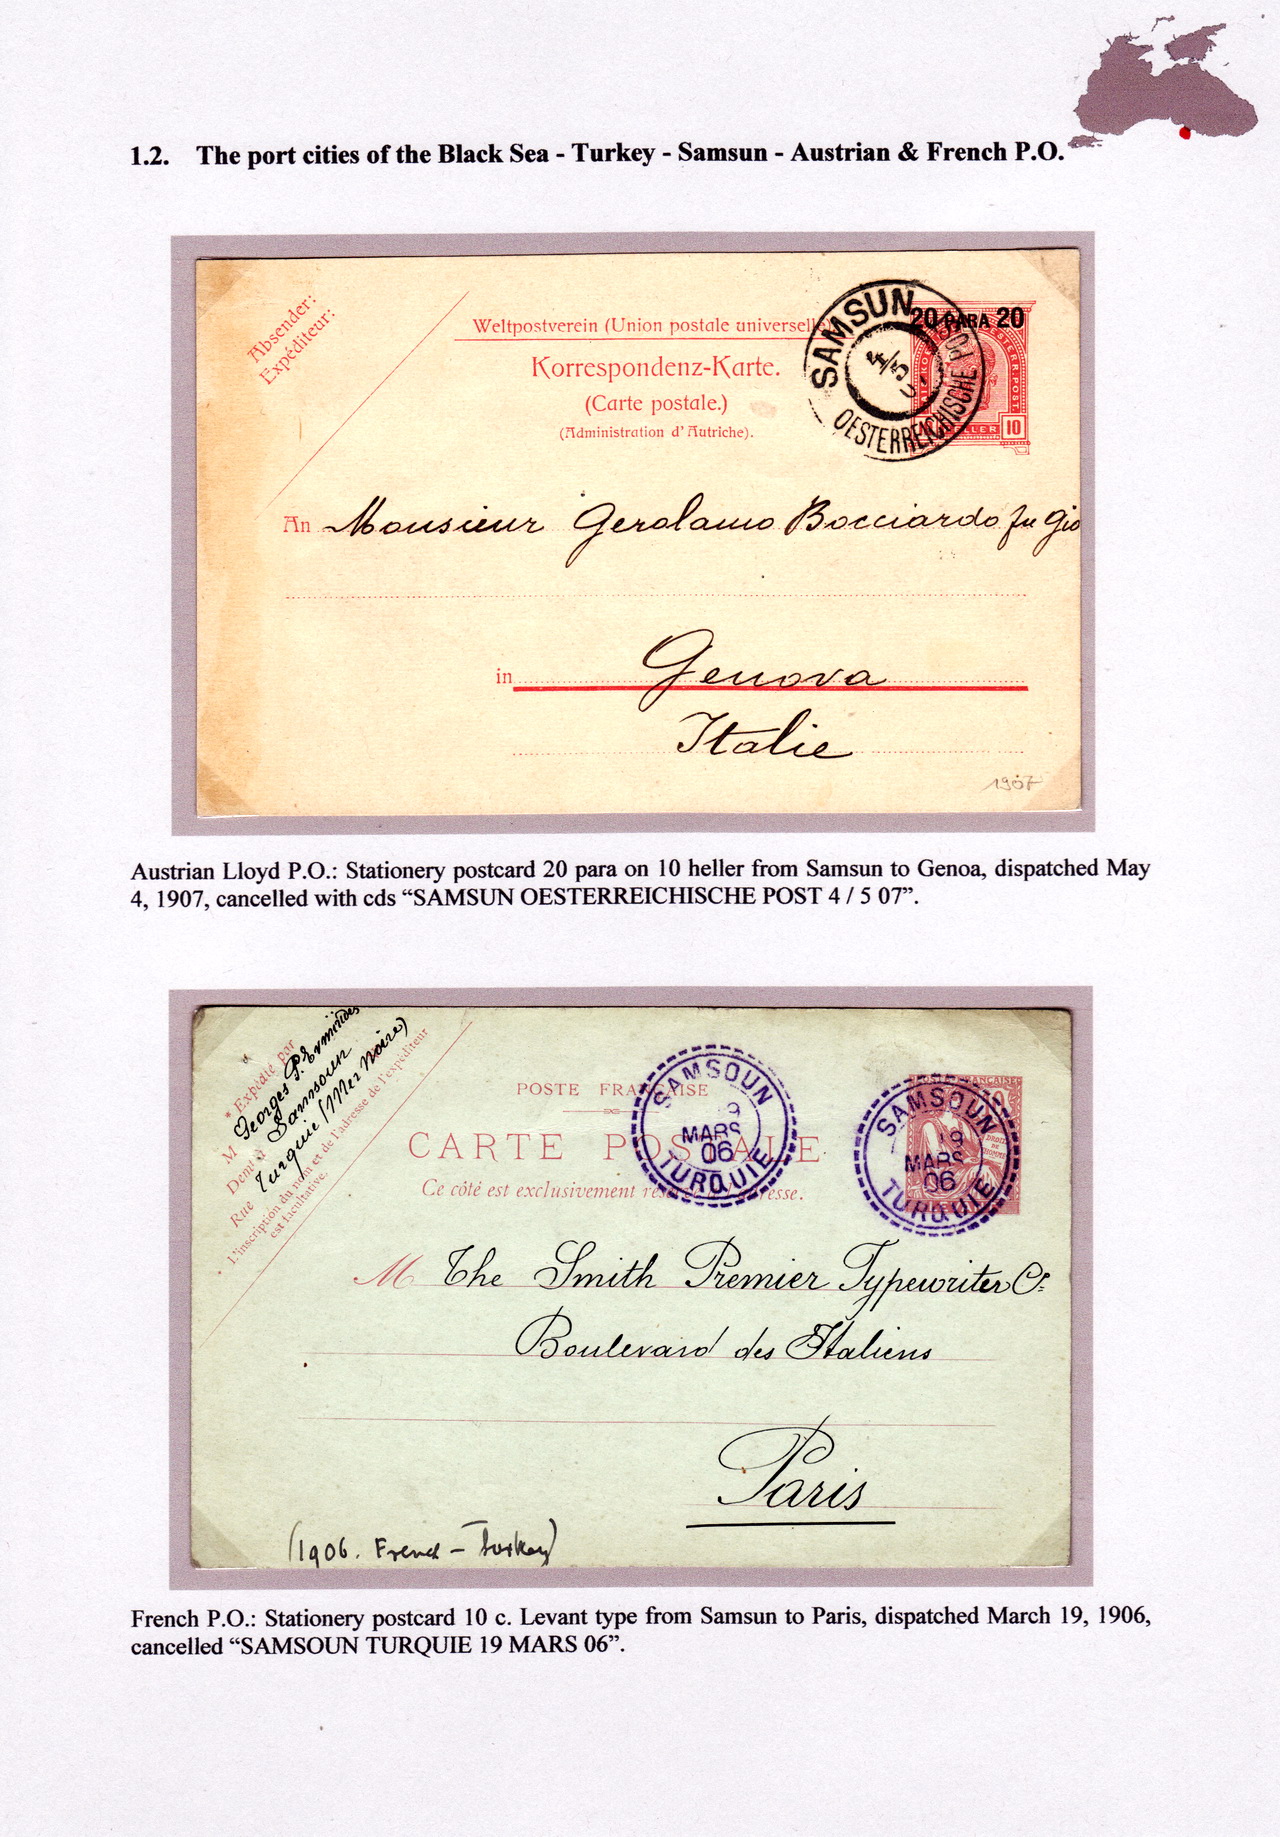 1.2. The port cities of the Black Sea - Turkey - Samsun - Austrian & French P.O.
Absender:
Expéditeur:
Weltpostverein (Union postale universelle)
Korrespondenz-Karte.
(Carte postale.)
(Administration d'Autriche).
SAMSUN
4/5
OESTERREICHISCHE POST
20 PARA 20
OESTERR. POST.
10 HELLER 10
An Monsieur Gerolamo Bocciardo fu Gio
in Genova
Italie
1907
Austrian Lloyd P.O.: Stationery postcard 20 para on 10 heller from Samsun to Genoa, dispatched May
4, 1907, cancelled with cds “SAMSUN OESTERREICHISCHE POST 4 / 5 07”.
* Expédié par
M Georges P.
Samsoun
Demt à
Turquie (Mer Noire)
Rue
L'inscription du nom et de l'adresse de l'expéditeur
est facultative.
POSTE FRANÇAISE
CARTE POSTALE
Ce côté est exclusivement réservé à l'adresse.
SAMSOUN
19
MARS
06
TURQUIE
SAMSOUN
19
MARS
06
TURQUIE
DROITS
DE
L'HOMME
M The Smith Premier Typewriter Co
Boulevard des Italiens
Paris
(1906. French - Turkey)
French P.O.: Stationery postcard 10 c. Levant type from Samsun to Paris, dispatched March 19, 1906,
cancelled “SAMSOUN TURQUIE 19 MARS 06”.